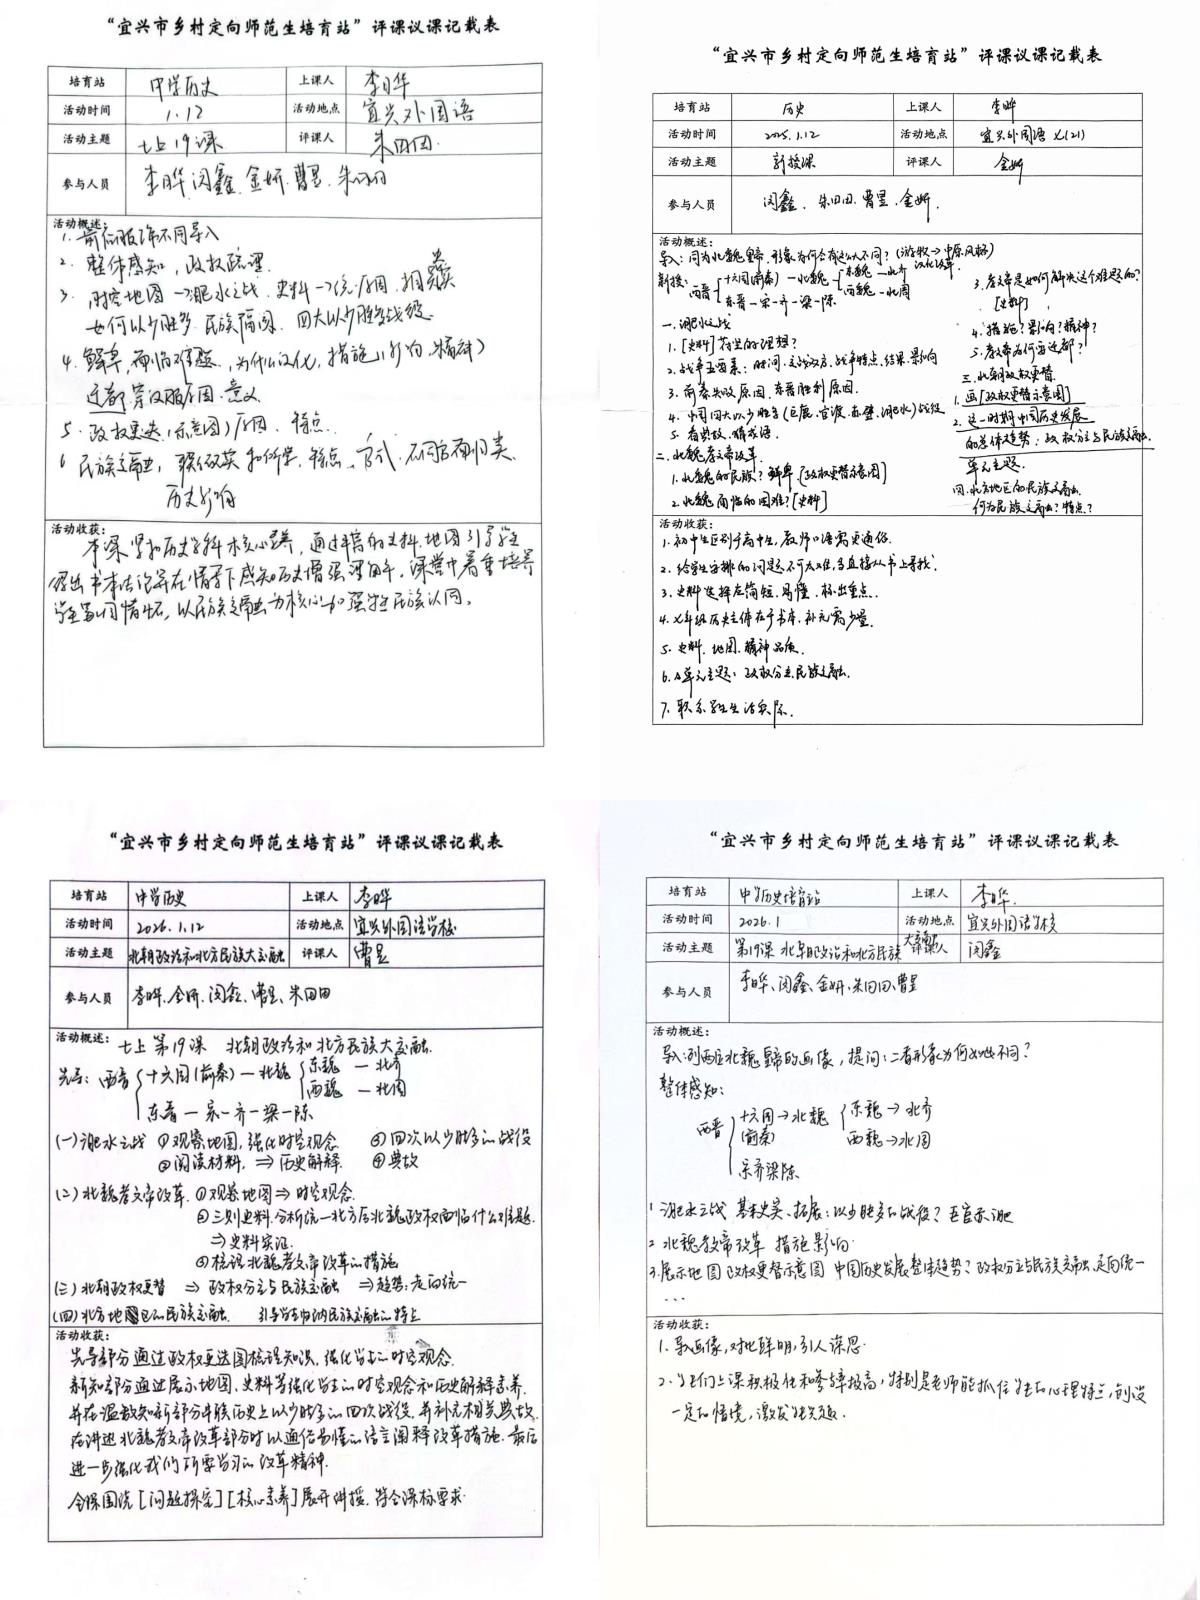 “宜兴市乡村定向师范生培育站”评课议课记载表
培育站 中学历史 上课人 李晔
活动时间 1.12 活动地点 宜兴外国语
活动主题 七上19课 评课人 朱田田
参与人员 李晔 闵鑫 金妍 曹昱 朱田田
活动概述：
1. 前后服饰不同导入
2. 整体感知，政权梳理
3. 时空地图→淝水之战 史料→
如何以少胜多 民族隔阂 四大以少胜多战役
4. 鲜卑 面临难题，为什么汉化，措施，影响，精神）
迁都 穿汉服原因 意义
5. 政权更迭（示意图）原因 特点
6 民族交融，
历史影响
活动收获：
“宜兴市乡村定向师范生培育站”评课议课记载表
培育站 历史 上课人 李晔
活动时间 2025.1.12 活动地点 宜兴外国语 七(21)
活动主题 新授课 评课人 金妍
参与人员 闵鑫、朱田田、曹昱、金妍.
活动概述：
导入：同为北魏皇帝，形象为何会有这么大不同？（游牧→中原风格）
新授： 西晋 十六国(前秦)—北魏 东魏—北齐 西魏—北周
东晋—宋—齐—梁—陈
一、淝水之战
1.[史料]苻坚的理想？
2.战争五要素：时间、交战双方、战争特点、结果、影响
3.前秦失败原因、东晋胜利原因.
4.中国四大以少胜多（巨鹿、官渡、赤壁、淝水）战役
5.看典故、猜成语.
二、北魏孝文帝改革.
1.北魏的民族？鲜卑.[政权更替示意图]
2.北魏面临的困难？[史料]
3.孝文帝是如何解决这个难题的？
[史料]
4.措施？影响？精神？
5.孝文帝为何要迁都？
三、北朝政权更替
1.画[政权更替示意图]
2.这一时期中国历史发展
的总体趋势：政权分立与民族交融.
单元主题.
四、北方地区的民族交融.
何为民族交融？特点？
活动收获：
1.初中生区别于高中生，教师口语需更通俗.
2.给学生安排的问题不可太难，多直接从书上寻找.
3.史料选择应简短、易懂、标出重点.
4.七年级历史主体在于书本、补充需少量.
5.史料、地图、精神品质.
6.单元主题：政权分立民族交融.
7.联系学生生活实际.
“宜兴市乡村定向师范生培育站”评课议课记载表
培育站 中学历史 上课人 李晔
活动时间 2026.1.12 活动地点 宜兴外国语学校
活动主题 北朝政治和北方民族大交融 评课人 曹昱
参与人员 李晔、金妍、闵鑫、曹昱、朱田田
活动概述： 七上 第19课 北朝政治和北方民族大交融.
先导： 西晋 十六国(前秦)—北魏 东魏—北齐 西魏—北周
东晋—宋—齐—梁—陈
(一)淝水之战 ①观察地图，强化时空观念 ③四次以少胜多的战役
②阅读材料，⇒历史解释. ④典故
(二)北魏孝文帝改革. ①观察地图⇒时空观念.
②三则史料.分析统一北方后北魏政权面临什么难题.
⇒史料实证.
③梳理北魏孝文帝改革的措施
(三)北朝政权更替 ⇒政权分立与民族交融 ⇒趋势:走向统一
(四)北方地区的民族交融. 引导学生归纳民族交融的特点
活动收获：
先导部分通过政权更迭图梳理知识，强化学生的时空观念.
新知部分通过展示地图、史料等强化学生的时空观念和历史解释素养.
并在温故知新部分串联历史上以少胜多的四次战役，并补充相关典故.
在讲述北魏孝文帝改革部分时以通俗易懂的语言阐释改革措施.最后
进一步强化我们所要学习的改革精神.
全课围绕[问题探究][核心素养]展开讲授，符合课标要求.
“宜兴市乡村定向师范生培育站”评课议课记载表
培育站 中学历史培育站 上课人 李晔
活动时间 2026.1 活动地点 宜兴外国语学校
活动主题 第19课 北朝政治和北方民族大交融 评课人 闵鑫
参与人员 李晔、闵鑫、金妍、朱田田、曹昱
活动概述：
导入：列两区北魏皇帝的画像，提问：二者形象为何如此不同？
整体感知：
西晋 十六国→北魏 东魏→北齐
(前秦) 西魏→北周
宋齐梁陈
1 淝水之战 基本史实、拓展：以少胜多的战役？巨官赤淝
2 北魏孝文帝改革 措施影响
3.展示地图 政权更替示意图 中国历史发展整体趋势？政权分立与民族交融、走向统一
...
活动收获：
1. 导入画像，对比鲜明，引人深思.
2. 学生们上课积极性和参与率较高，特别是老师能抓住学生的心理特点，创设
一定的情境，激发学生兴趣.